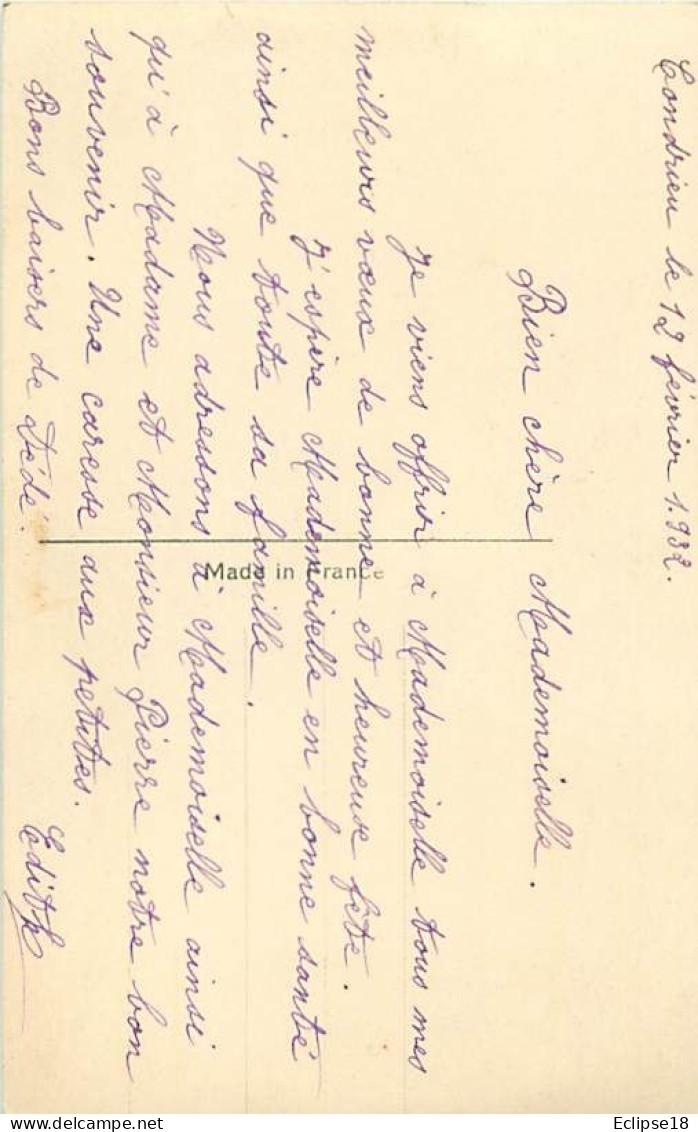 Condrieu le 12 février 1.932.
Bien chère Mademoiselle.
Je viens offrir à Mademoiselle tous mes
meilleurs vœux de bonne et heureuse fête.
J'espère Mademoiselle en bonne santé
ainsi que toute sa famille.
Nous adressons à Mademoiselle ainsi
qu'à Madame et Monsieur Pierre notre bon
souvenir. Une caresse aux petites.
Bons baisers de Dédé.
Edith
Made in France
delcampe.net
Eclipse18